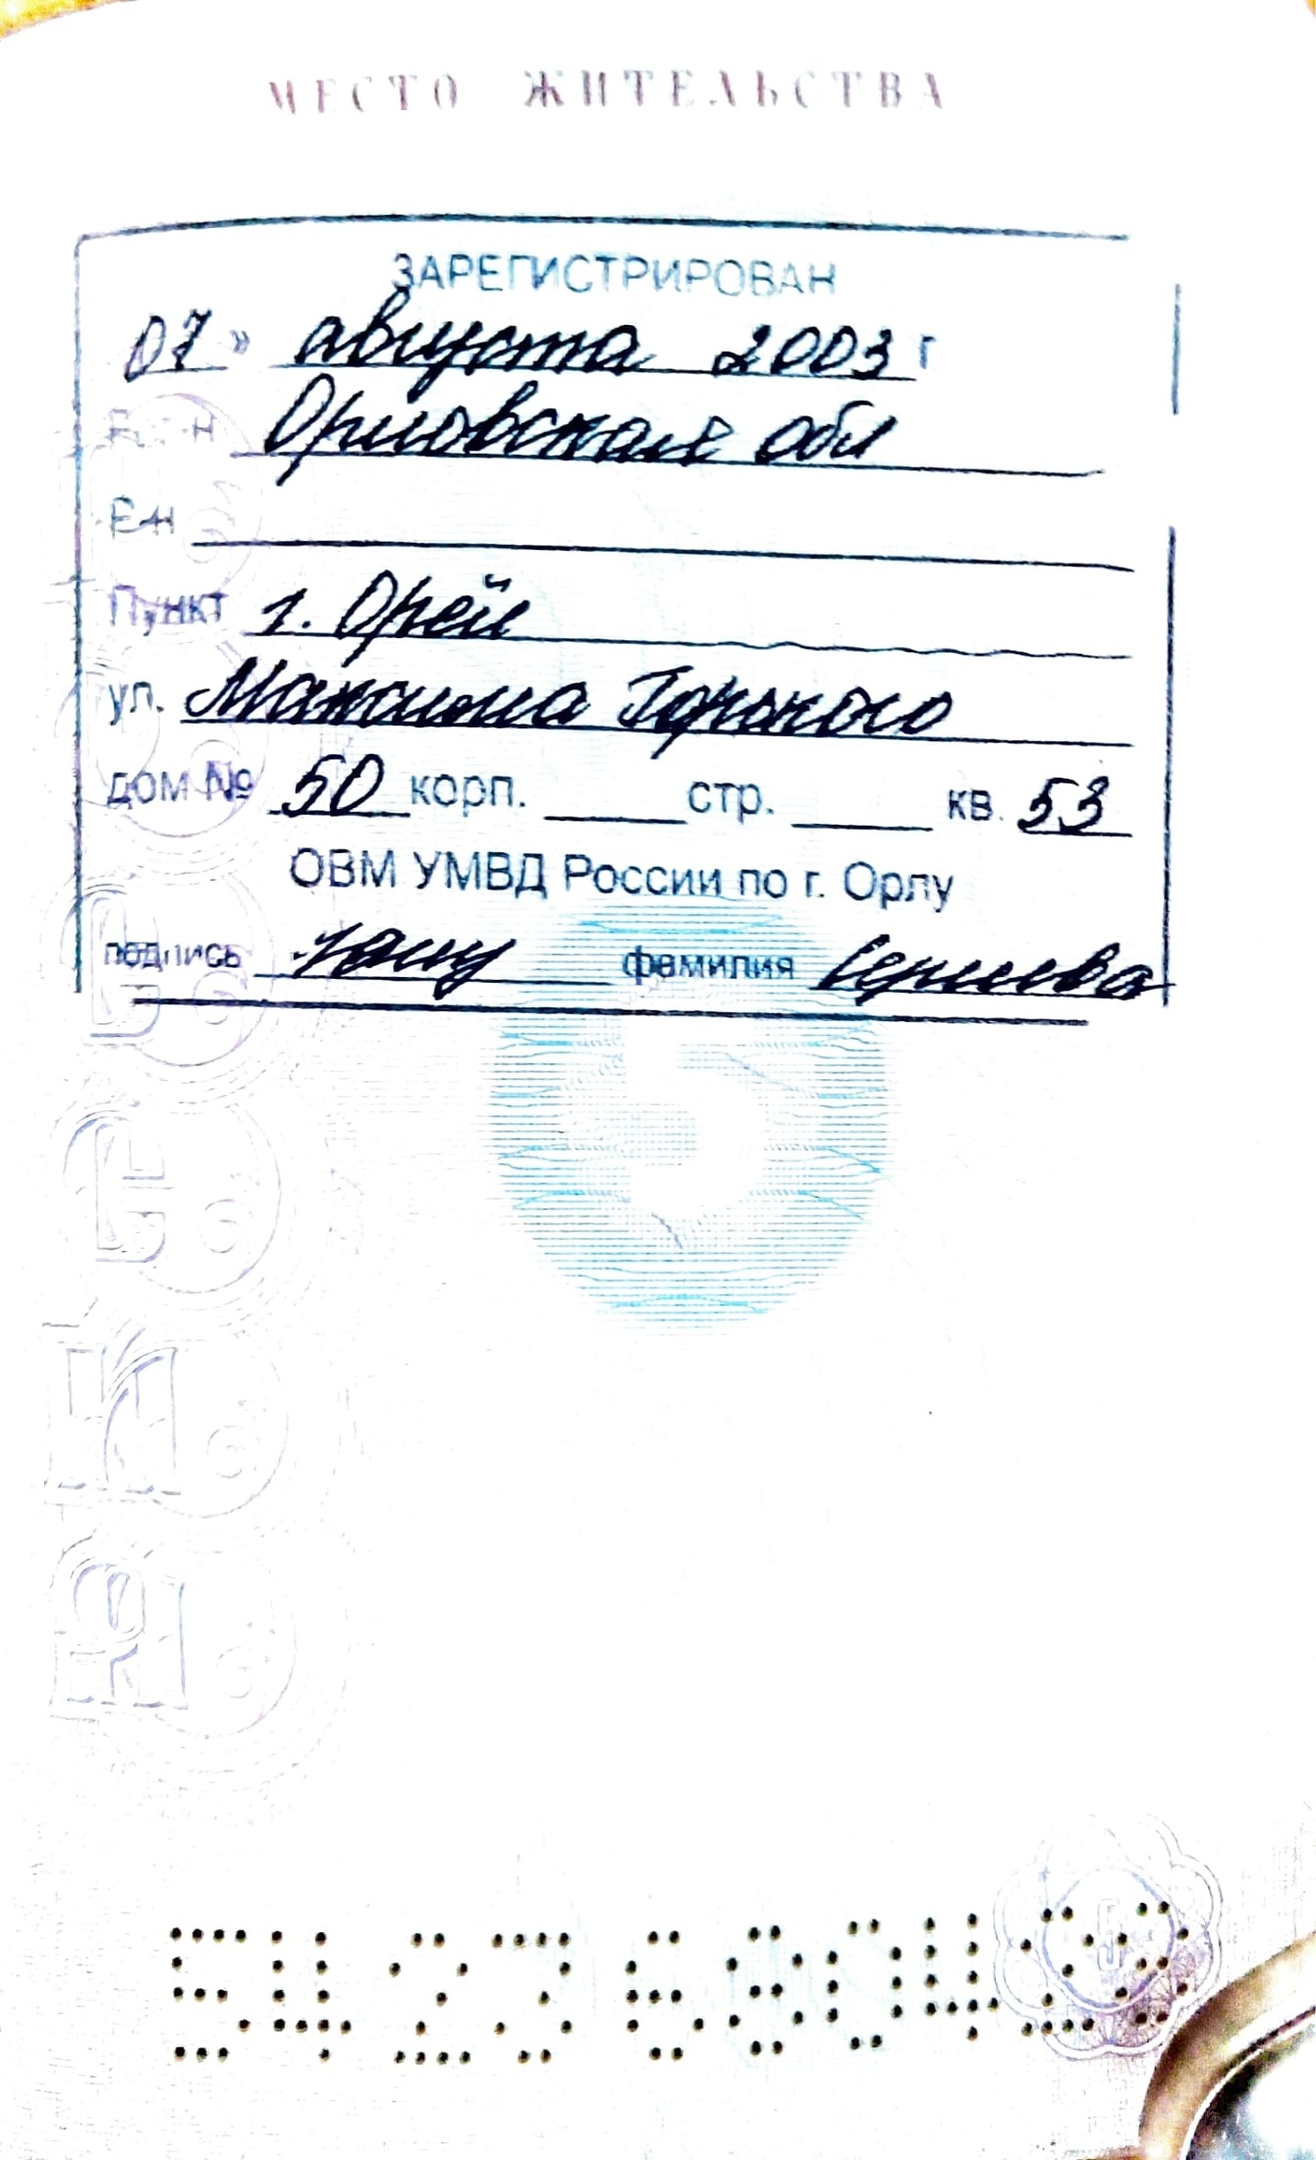 МЕСТО ЖИТЕЛЬСТВА
ЗАРЕГИСТРИРОВАН
07 » августа 2003 г
Р-он Орловская обл
Р-н
Пункт г. Орёл
ул. Максима Горького
дом № 50 корп. стр. кв. 53
ОВМ УМВД России по г. Орлу
подпись фамилия
5